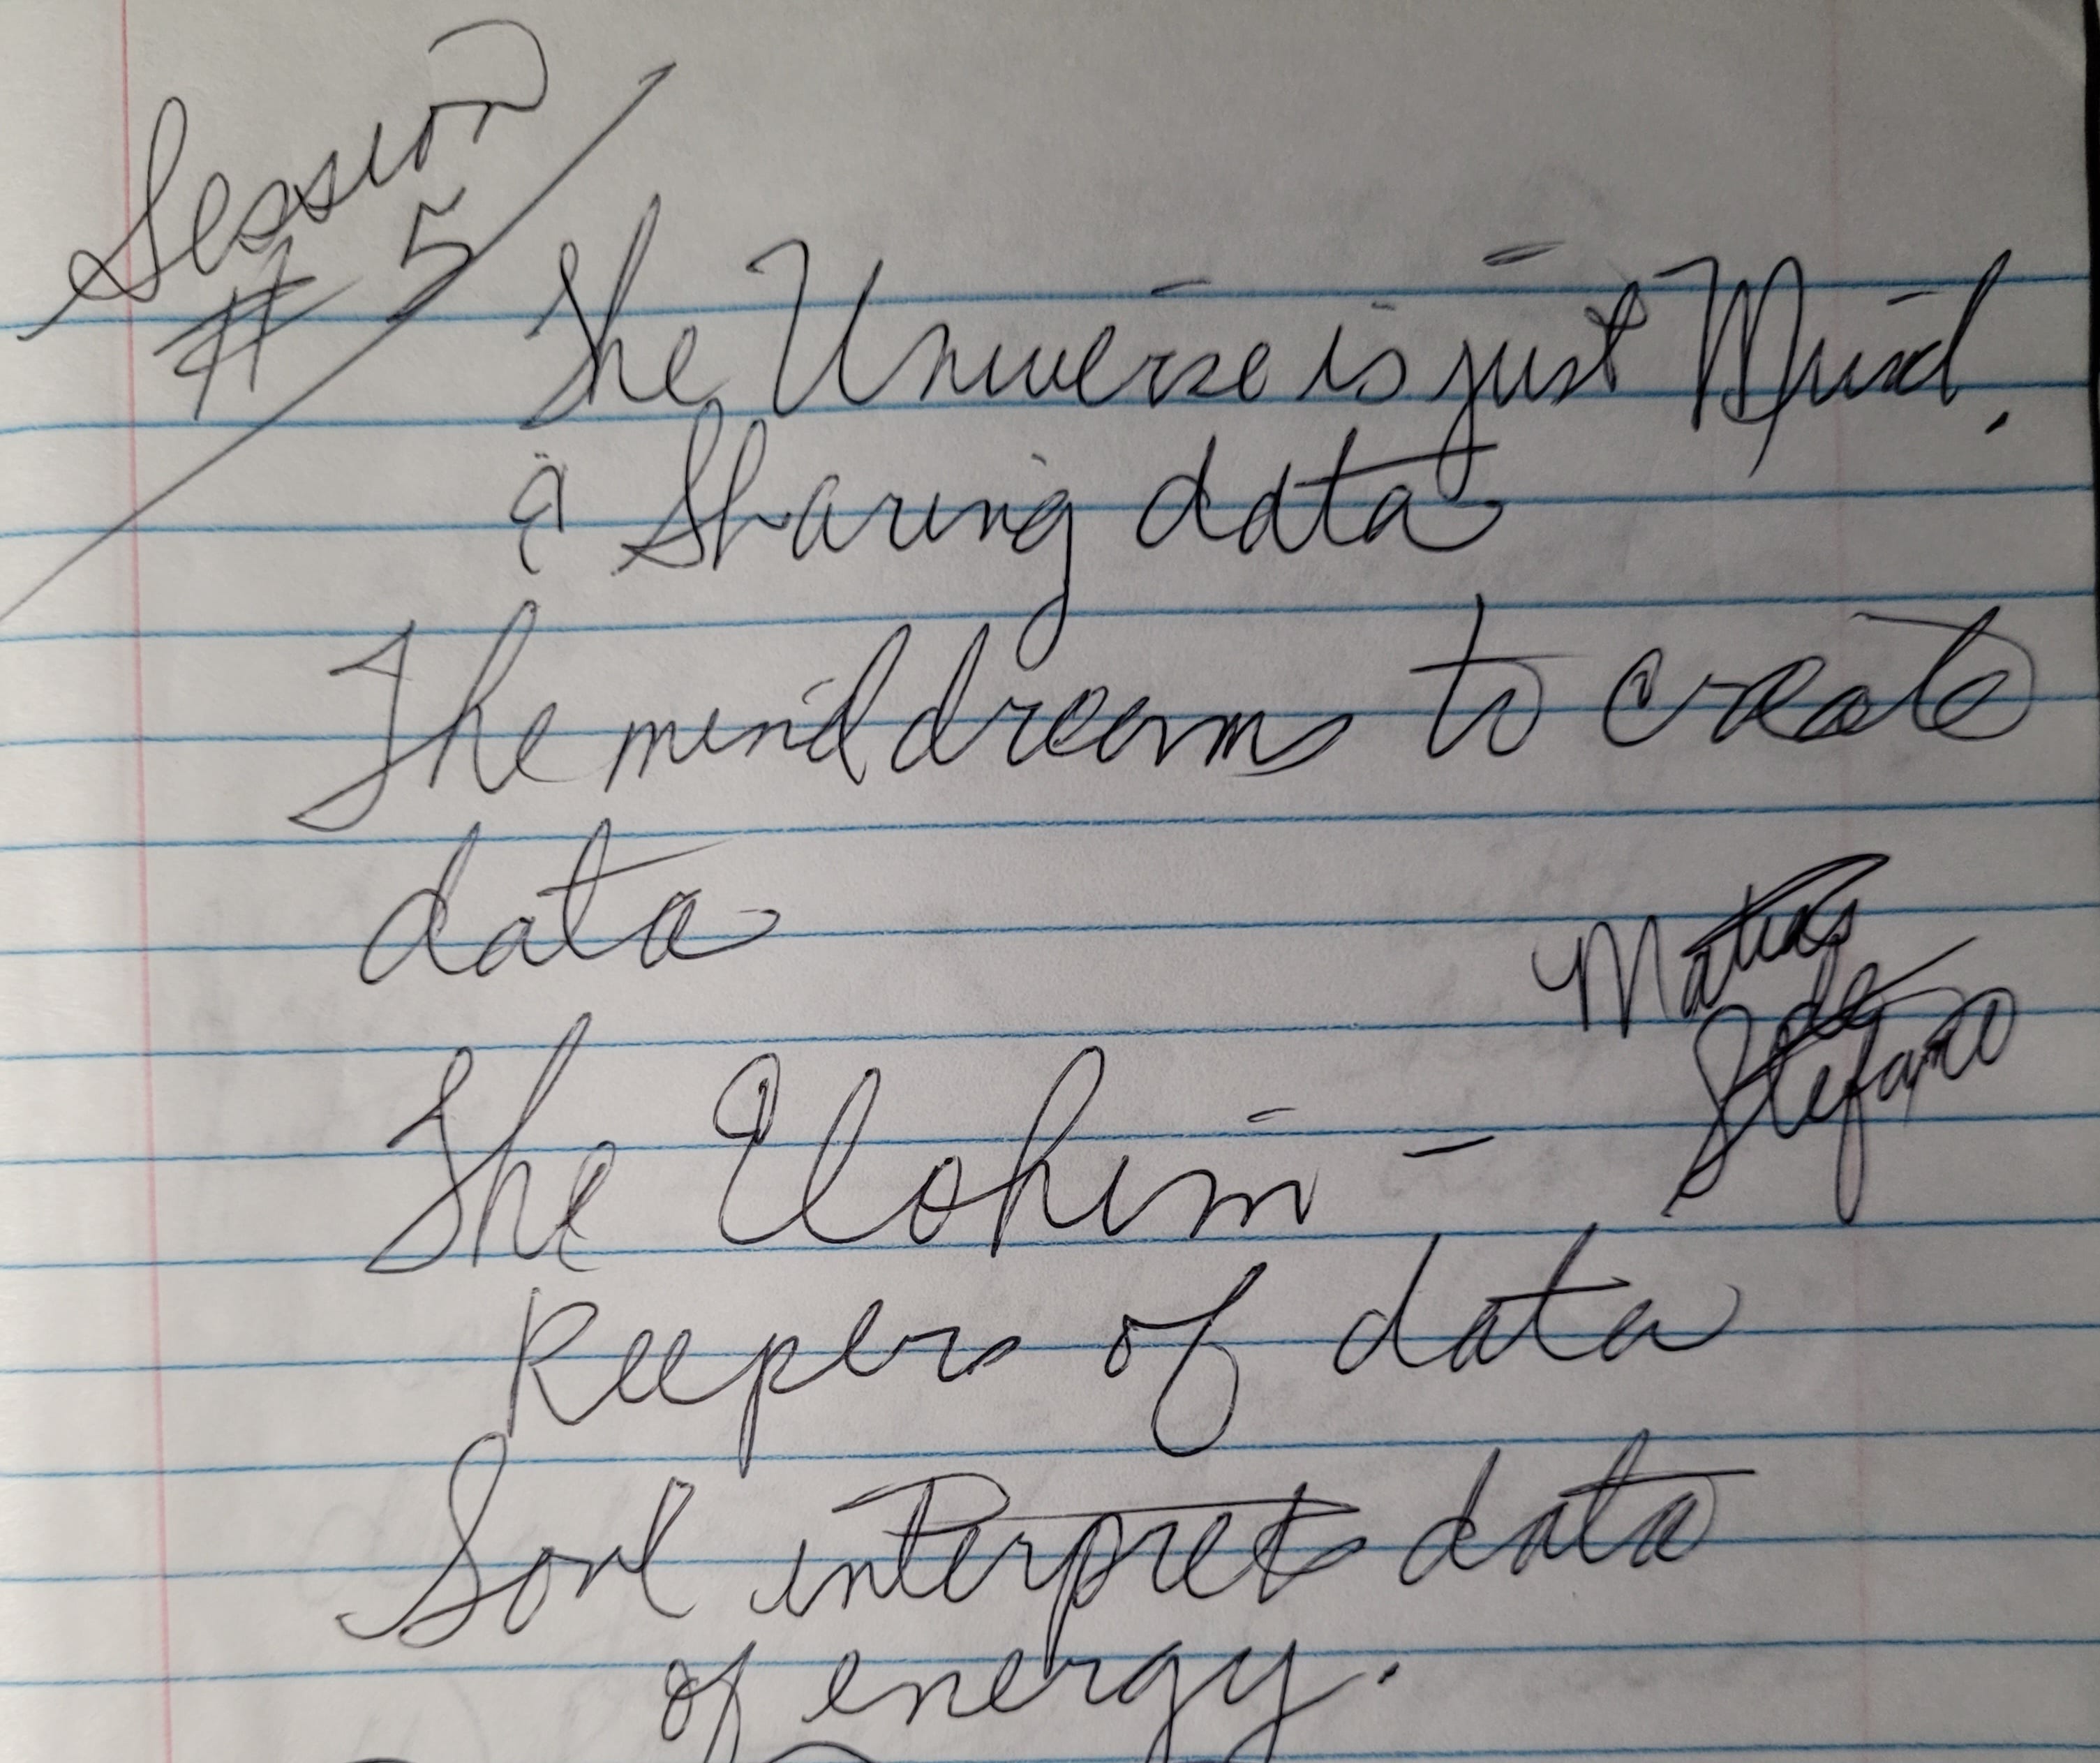 Session
# 5
The Universe is just Mind.
& Sharing data
The mind dreams to create
data
Matias
de
Stefano
The Elohim -
Keepers of data
Soul interprets data
of energy.